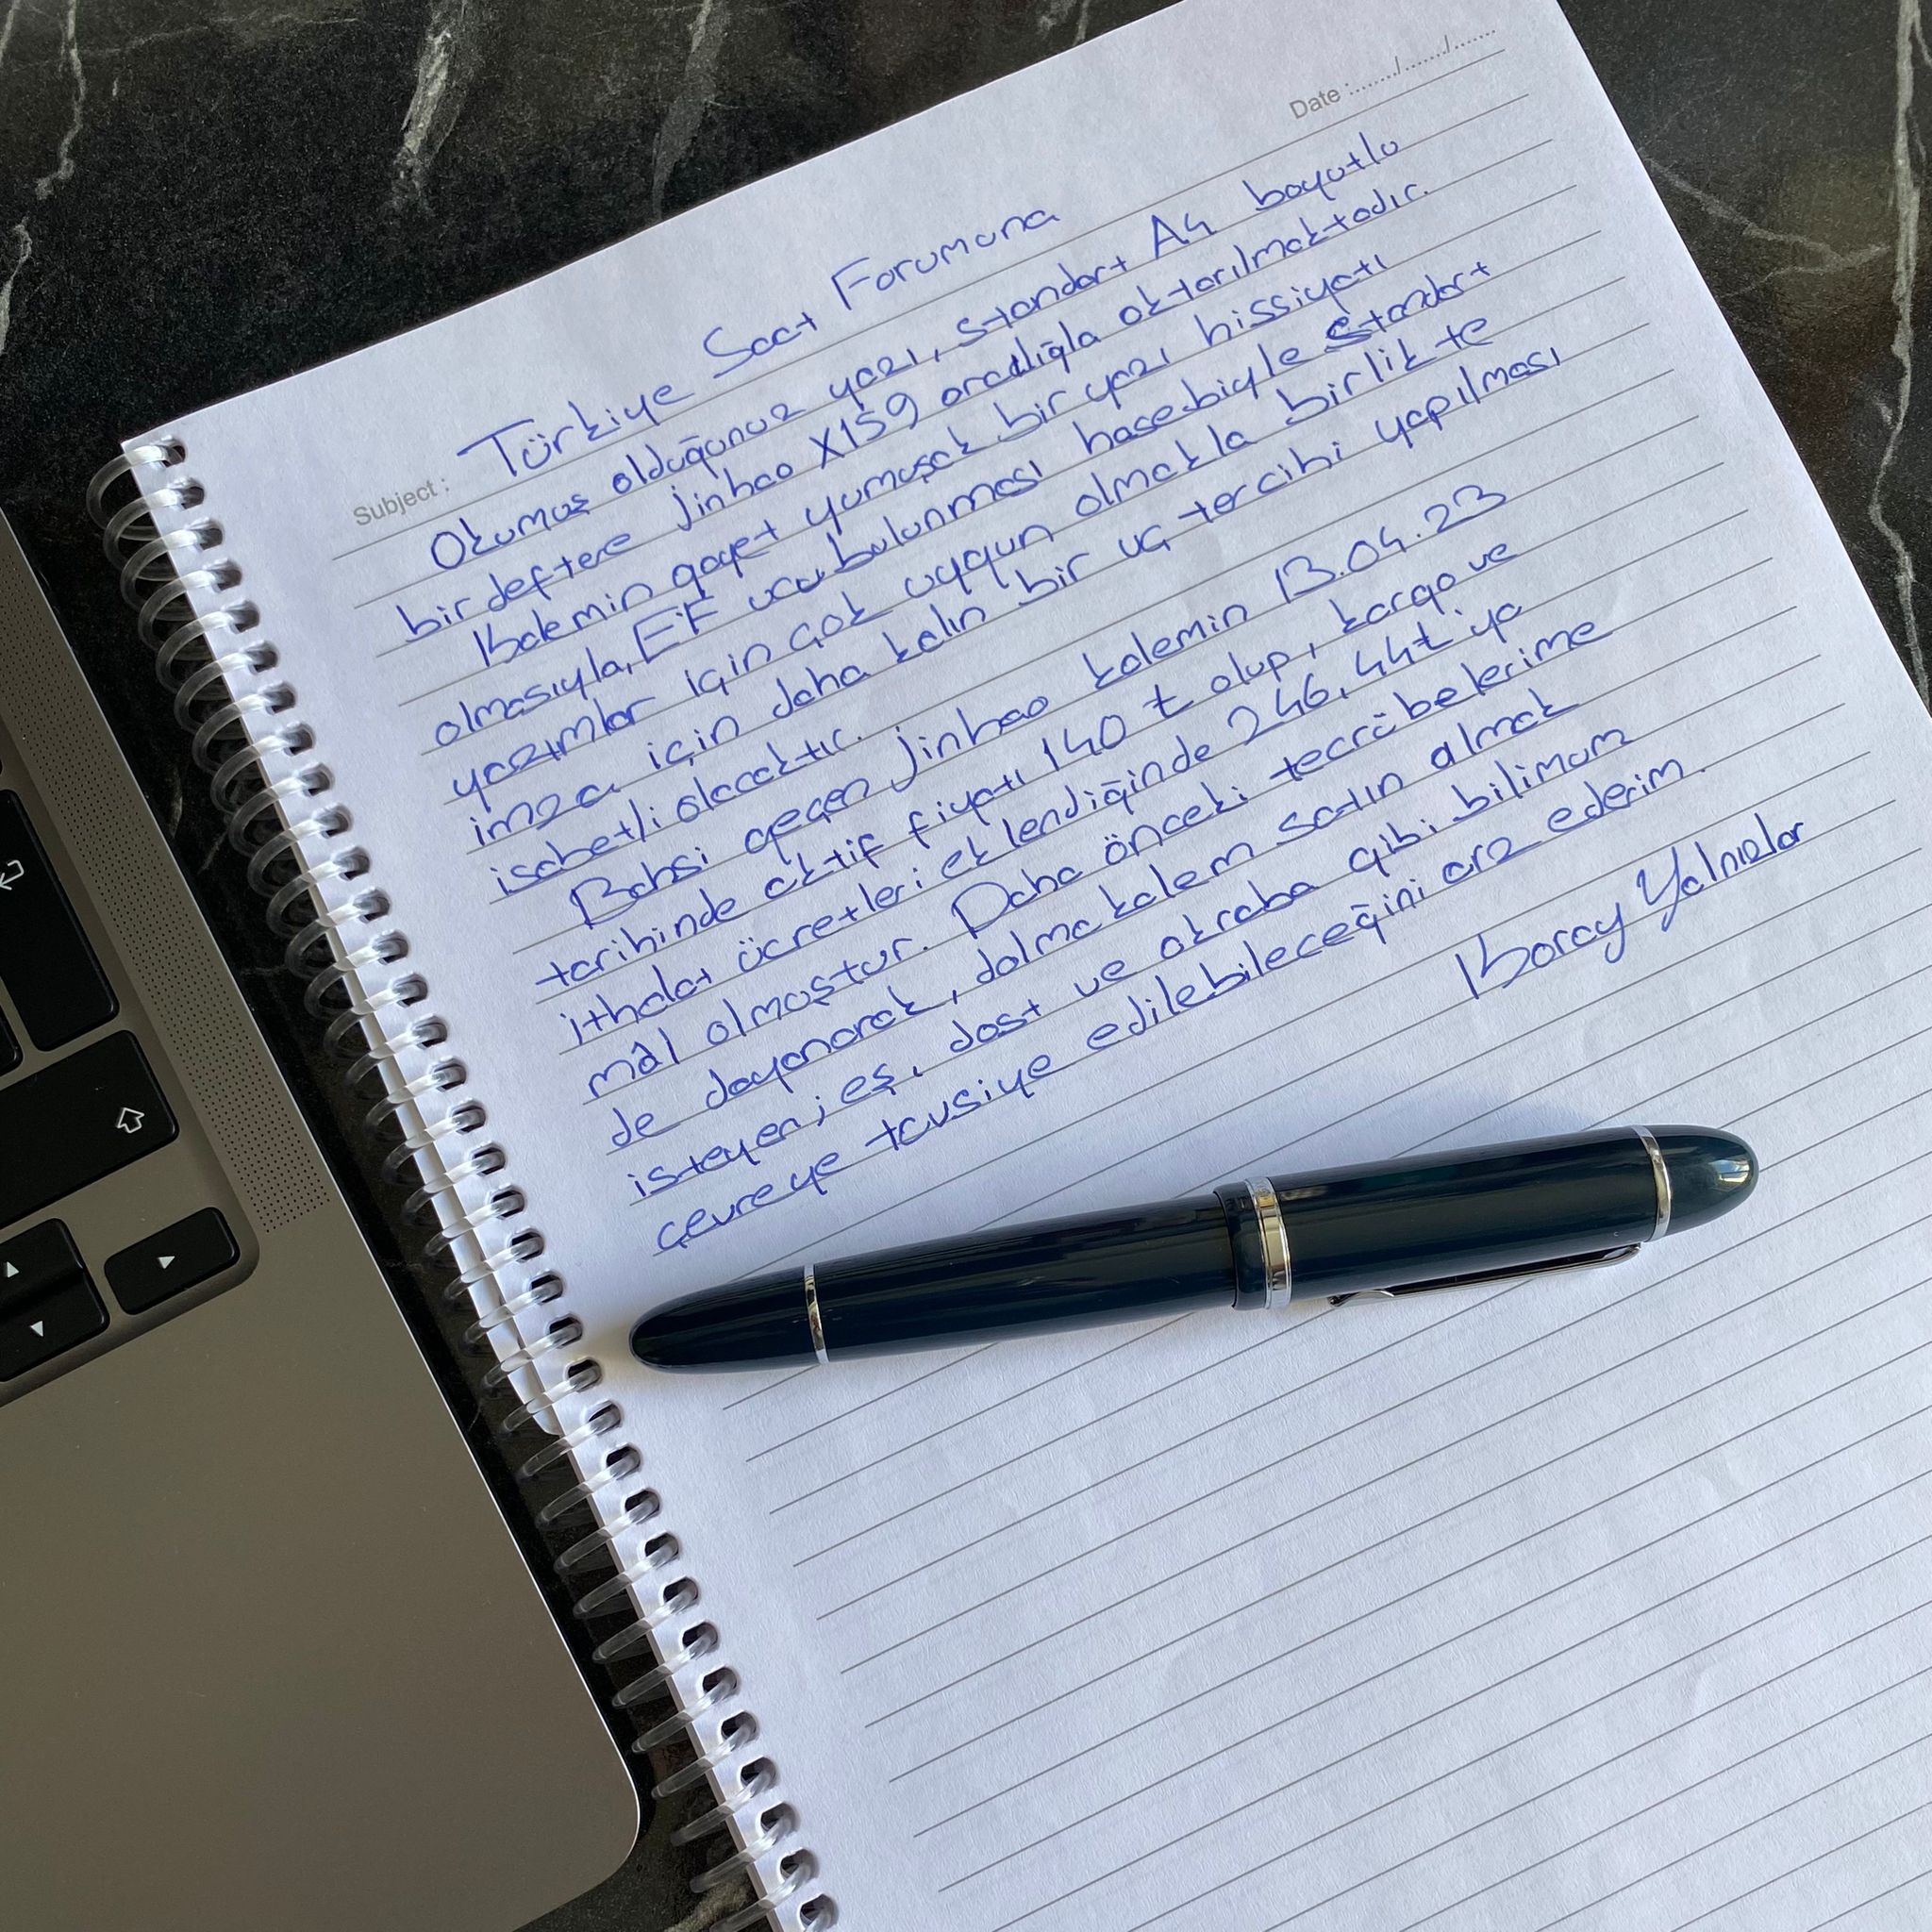 Date :......./......./.......
Subject :
Türkiye Saat Forumuna
Okumuş olduğunuz yazı, standart A4 boyutlu
bir deftere jinhao X159 aracılığla aktarılmaktadır.
Kalemin gayet yumuşak bir yazı hissiyatı
olmasıyla, EF ucu bulunması hasebiyle standart
yazımlar için çok uygun olmakla birlikte
imza için daha kalın bir uç tercihi yapılması
isabetli olacaktır.
Bahsi geçen jinhao kalemin 13.04.23
tarihinde aktif fiyatı 140 ₺ olup, kargo ve
ithalat ücretleri eklendiğinde 246,44₺ ye
mâl olmuştur. Daha önceki tecrübelerime
de dayanarak, dolma kalem satın almak
isteyen; eş, dost ve akraba gibi bilimum
çevreye tavsiye edilebileceğini arz ederim.
Koray Yalnızlar